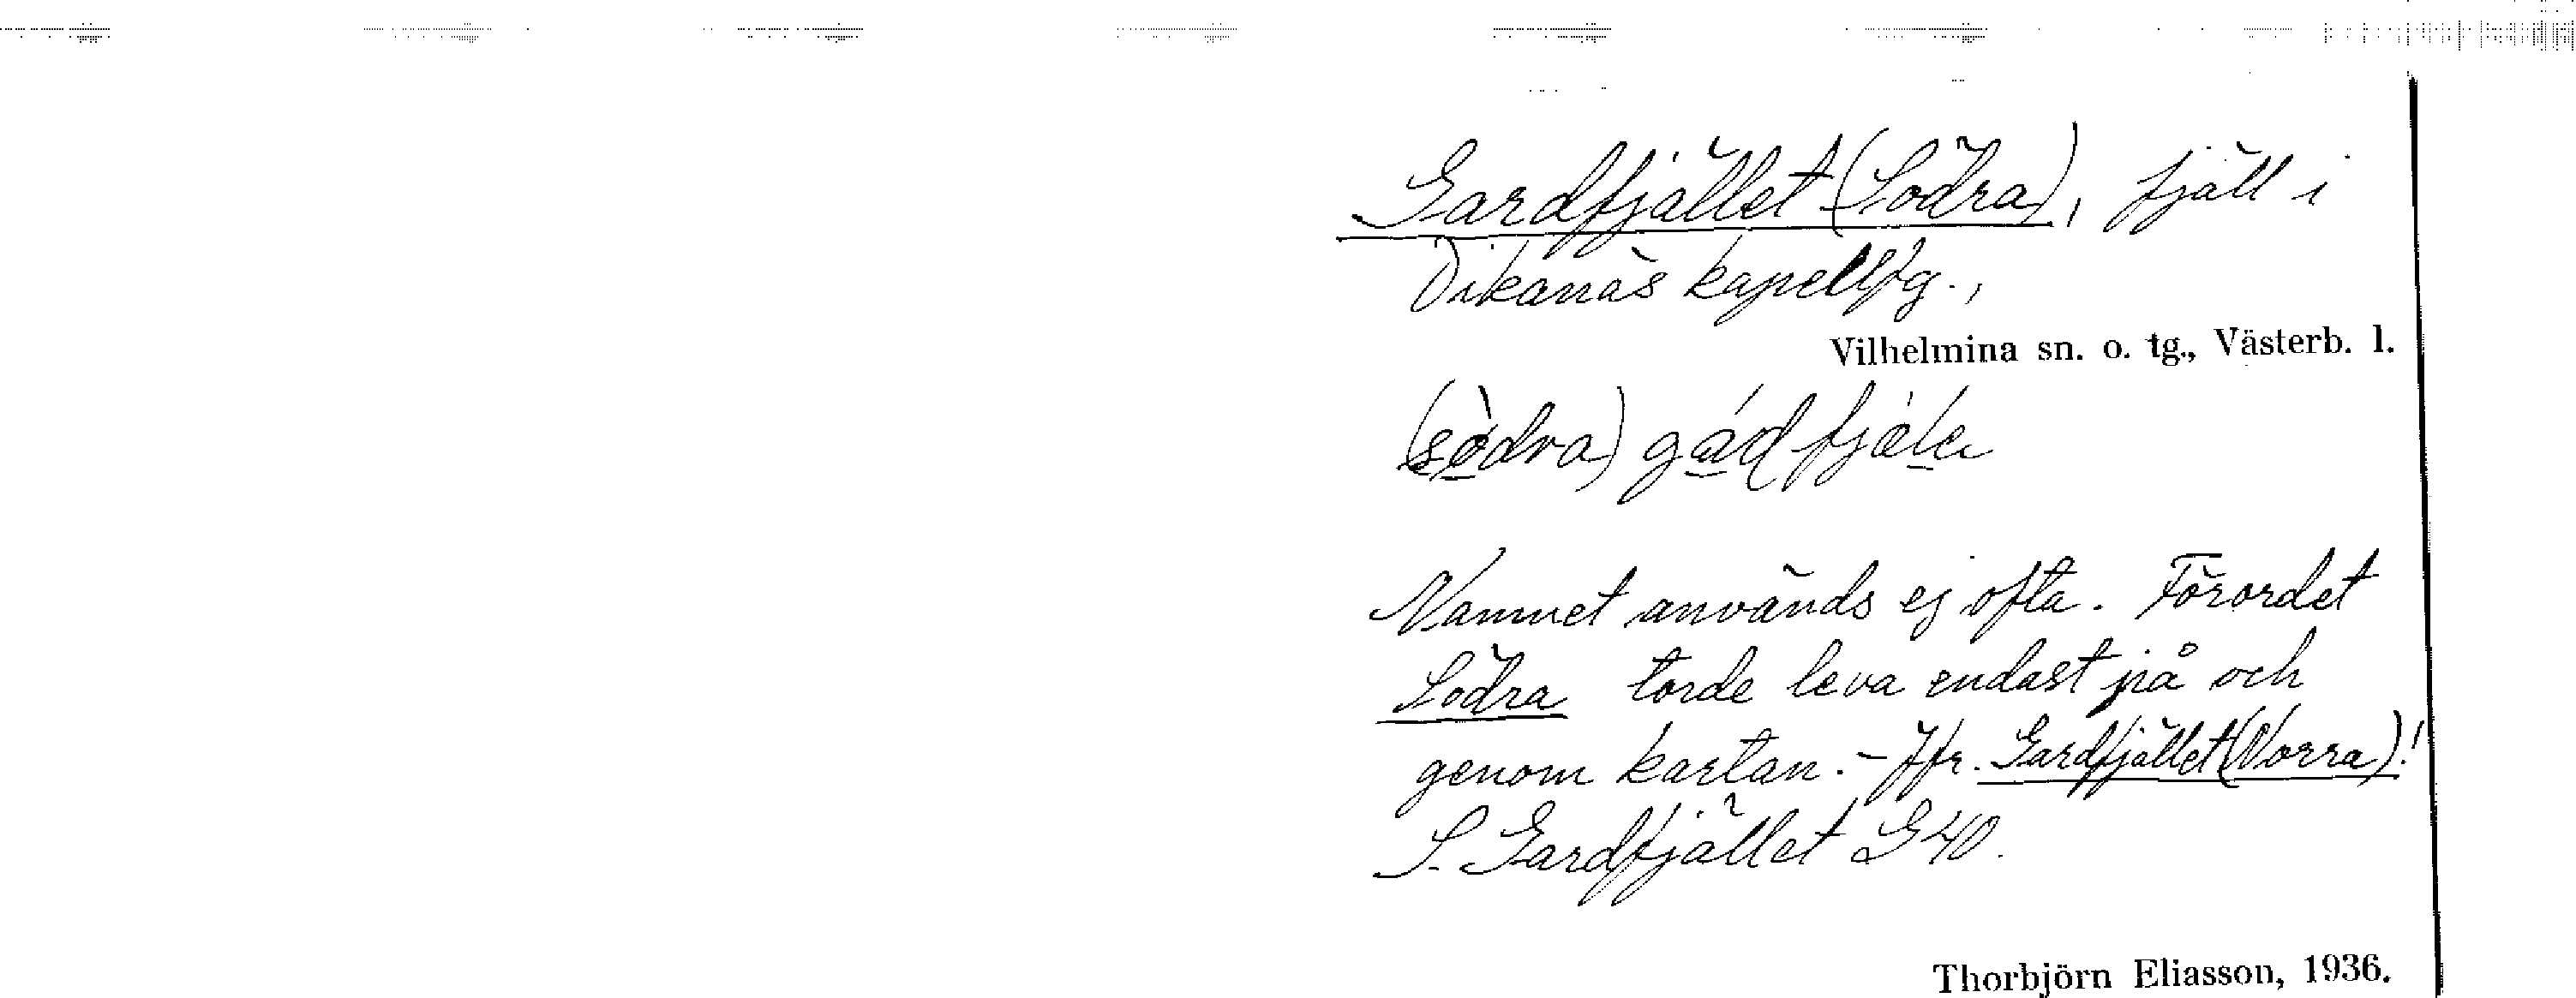 Gardfjället (Södra), fjäll i
Dikanäs kapellfg.,
Vilhelmina sn. o. tg., Västerb. l.
(sødra) gáḍfjæle
Namnet används ej ofta. Förordet
Södra torde leva endast på och
genom kartan. – Jfr. Gardfjället (Norra)!
S. Gardfjället G40.
Thorbjörn Eliasson, 1936.